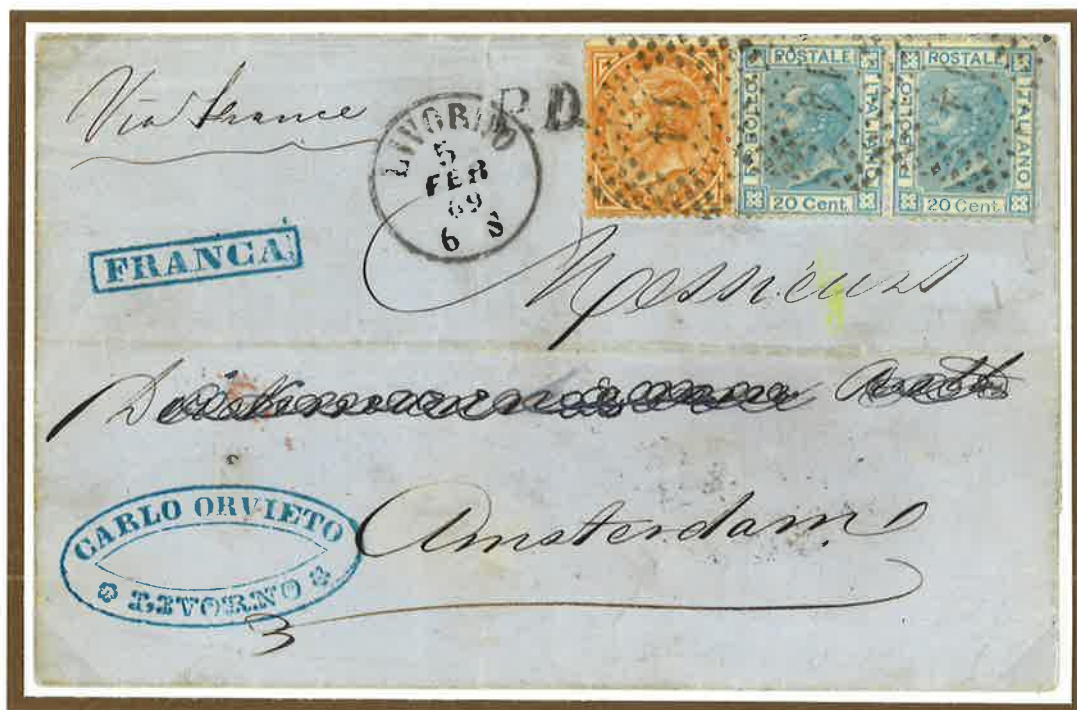 Via France
LIVORNO
5
FEB
69
6 S
P.D.
POSTALE
F. BOLLO
ITALIANO
20 Cent
POSTALE
F. BOLLO
ITALIANO
20 Cent
FRANCA
Messieurs
Amsterdam
CARLO ORVIETO
LIVORNO